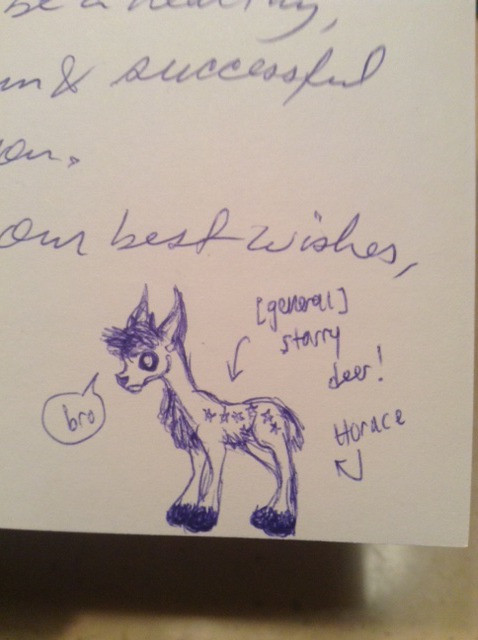 be a healthy,
& successful
our best wishes,
[general]
starry
deer!
bro
Horace